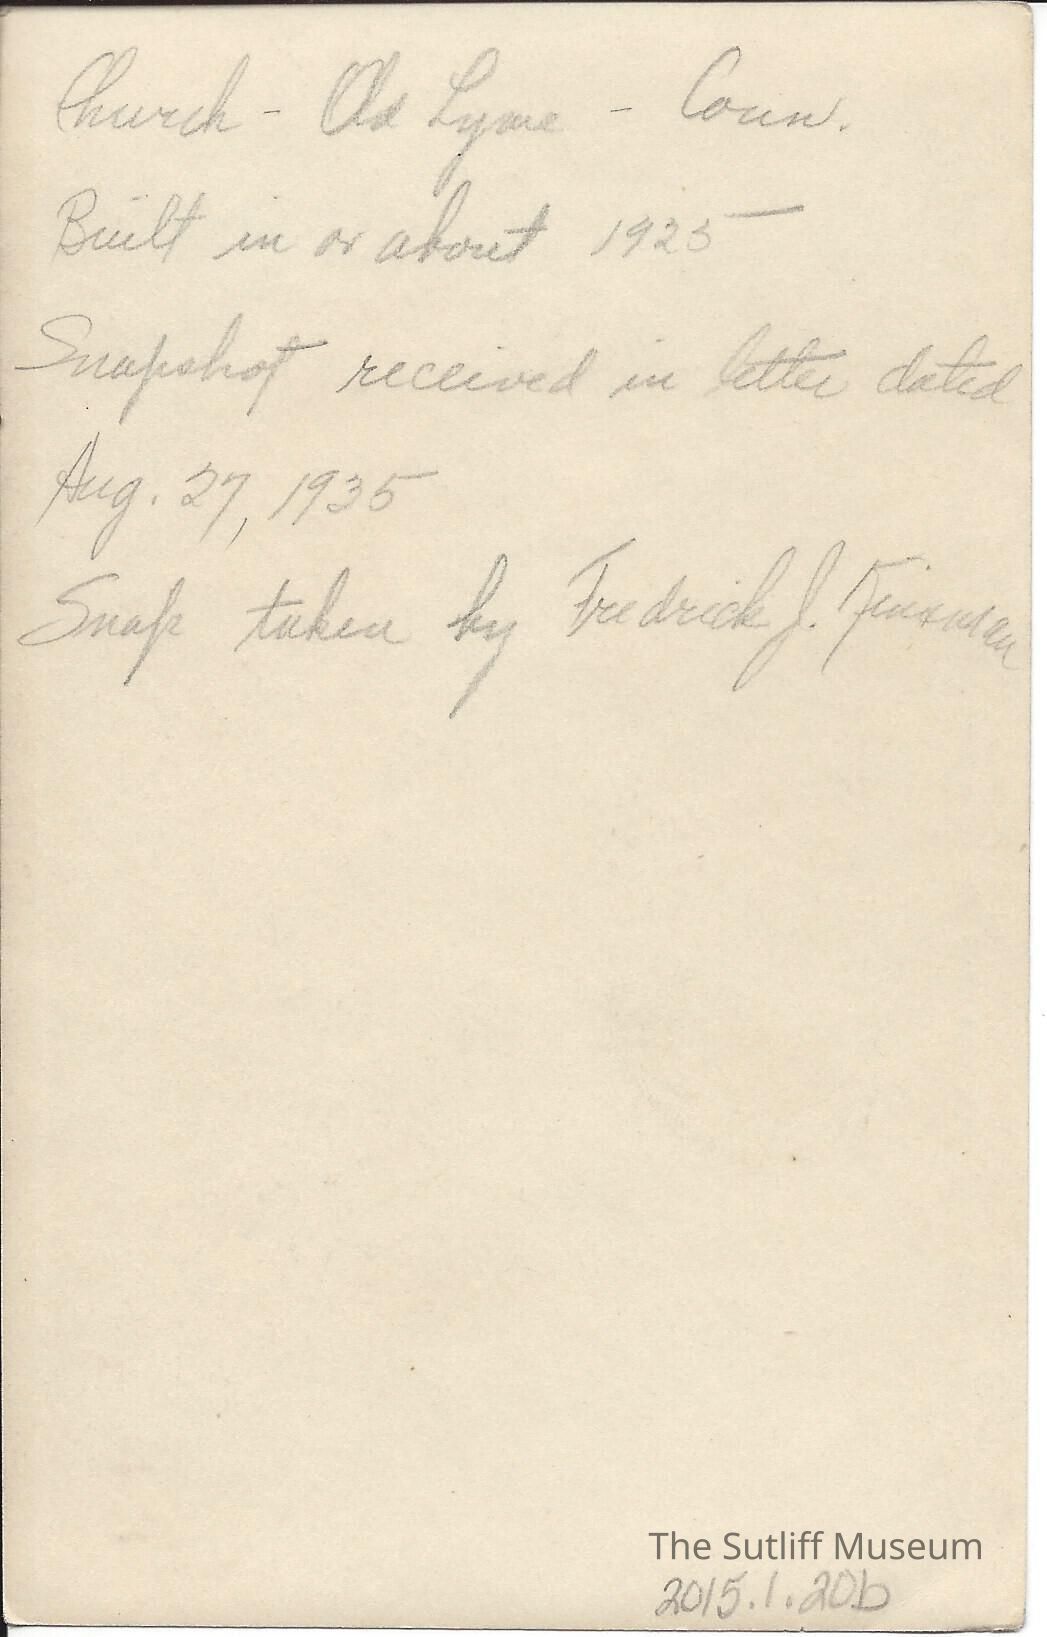 Church - Old Lyme - Conn.
Built in or about 1925
Snapshot received in letter dated
Aug. 27, 1935
Snap taken by Fredrick J. Kinsman
The Sutliff Museum
2015.1.20b